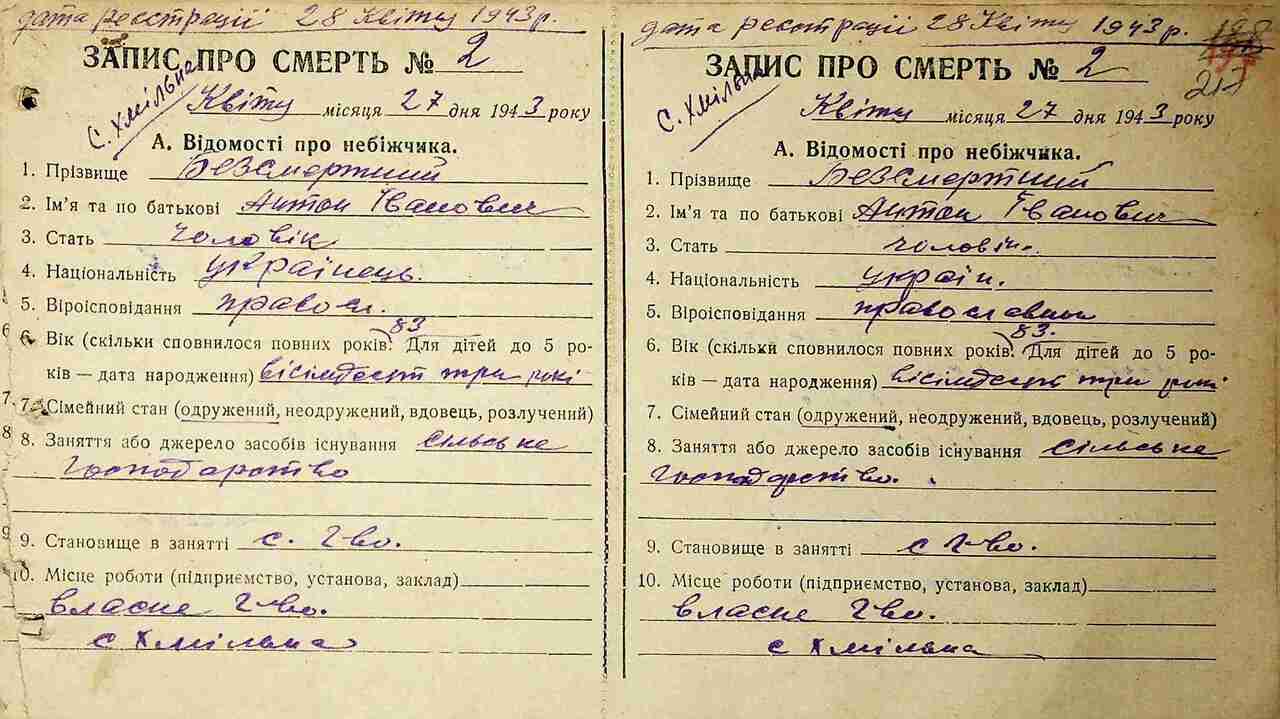 дата реєстрації 28 Квітн 1943 р.
ЗАПИС ПРО СМЕРТЬ № 2
с. Хмільна
Квітн місяця 27 дня 1943 року
А. Відомості про небіжчика.
1. Прізвище Безсмертний
2. Ім'я та по батькові Антон Іванович
3. Стать чоловік
4. Національність українець.
5. Віроісповідання правосл.
83
6. Вік (скільки сповнилося повних років. Для дітей до 5 ро-
ків — дата народження) вісімдесят три рокі
7. Сімейний стан (одружений, неодружений, вдовець, розлучений)
8. Заняття або джерело засобів існування сільське
господарство
9. Становище в занятті с. г-во.
10. Місце роботи (підприємство, установа, заклад)
власне г-во.
с Хмільна
6
7.
8
9
дата реєстрації 28 Квітн 1943 р.
217
ЗАПИС ПРО СМЕРТЬ № 2
с. Хмільна
Квітн місяця 27 дня 1943 року
А. Відомості про небіжчика.
1. Прізвище Безсмертний
2. Ім'я та по батькові Антон Іванович
3. Стать чоловік.
4. Національність україн.
5. Віроісповідання православни
83.
6. Вік (скільки сповнилося повних років. Для дітей до 5 ро-
ків — дата народження) вісімдесят три рокі
7. Сімейний стан (одружений, неодружений, вдовець, розлучений)
8. Заняття або джерело засобів існування сільське
господарство.
9. Становище в занятті с г-во.
10. Місце роботи (підприємство, установа, заклад)
власне г-во.
с Хмільна